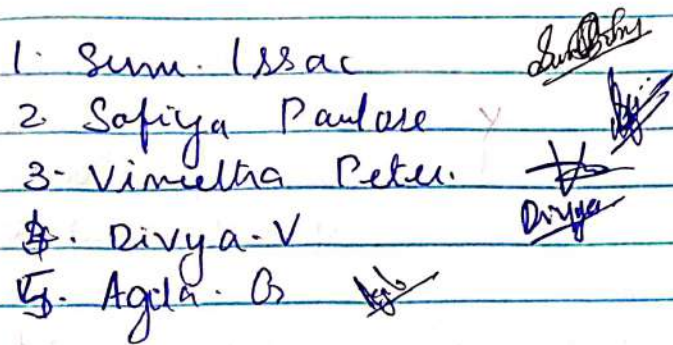 1. Sumi. Issac
2. Safiya Paulose
3- Vineetha Peter.
4. Divya. V Divya
5. Agila. G